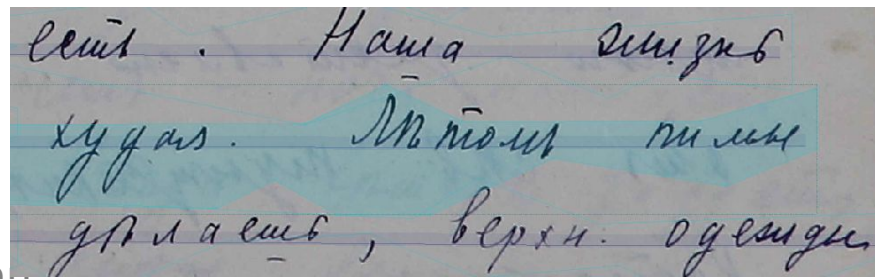 есть. Наша жизнь
худая. Лѣтомъ пимы
дѣлаешь, верхн. одежды